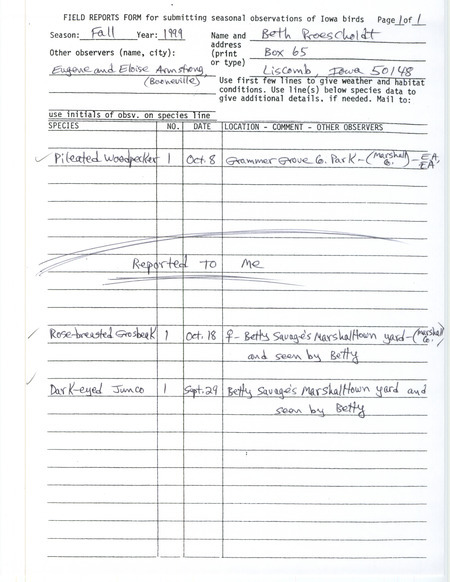 FIELD REPORTS FORM for submitting seasonal observations of Iowa birds Page 1 of 1
Season: Fall Year: 1999 Name and Beth Proescholdt
address
Other observers (name, city): (print Box 65
or type)
Eugene and Eloise Armstrong, Liscomb, Iowa 50148
(Booneville) Use first few lines to give weather and habitat
conditions. Use line(s) below species data to
give additional details, if needed. Mail to:
use initials of obsv. on species line
SPECIES NO. DATE LOCATION - COMMENT - OTHER OBSERVERS
✓ Pileated Woodpecker 1 Oct. 8 Grammer Grove Co. Park - (Marshall Co.) - EA, EA
Reported TO Me
✓ Rose-breasted Grosbeak 1 Oct. 18 ♀ - Betty Savage's Marshalltown yard - (Marshall Co.)
and seen by Betty
✓ Dark-eyed Junco 1 Sept. 29 Betty Savage's Marshalltown yard and
seen by Betty